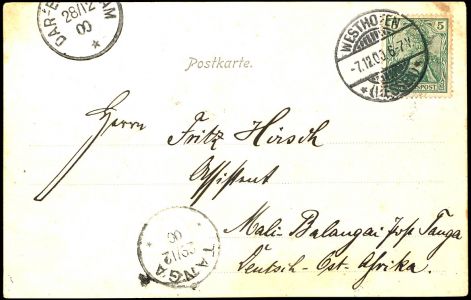 DAR-ES-SALAAM
28/12
00
WESTHOFEN
-7.12.00.6-7N.
5
Postkarte.
Herrn Fritz Hirsch
Assistent
Mali-Balangai Tanga
Deutsch-Ost-Afrika.
TANGA
29/12
00